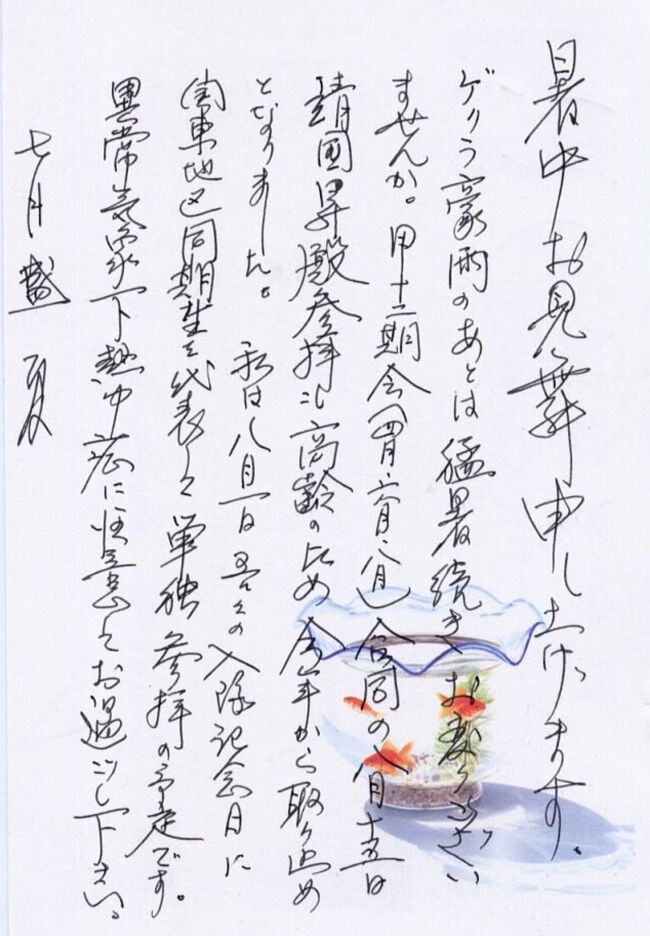 暑中お見舞申し上げます。
ゲリラ豪雨のあとは猛暑続き、お変りござい
ませんか。甲十二期会(四月・六月・八月)合同の八月十五日
靖国昇殿参拝も高齢のため今年から取り止め
となりました。 私は八月一日 吾々の入隊記念日に
関東地区同期生を代表して単独参拝の予定です。
異常気象下熱中症に注意してお過ごし下さい。
七月盛夏